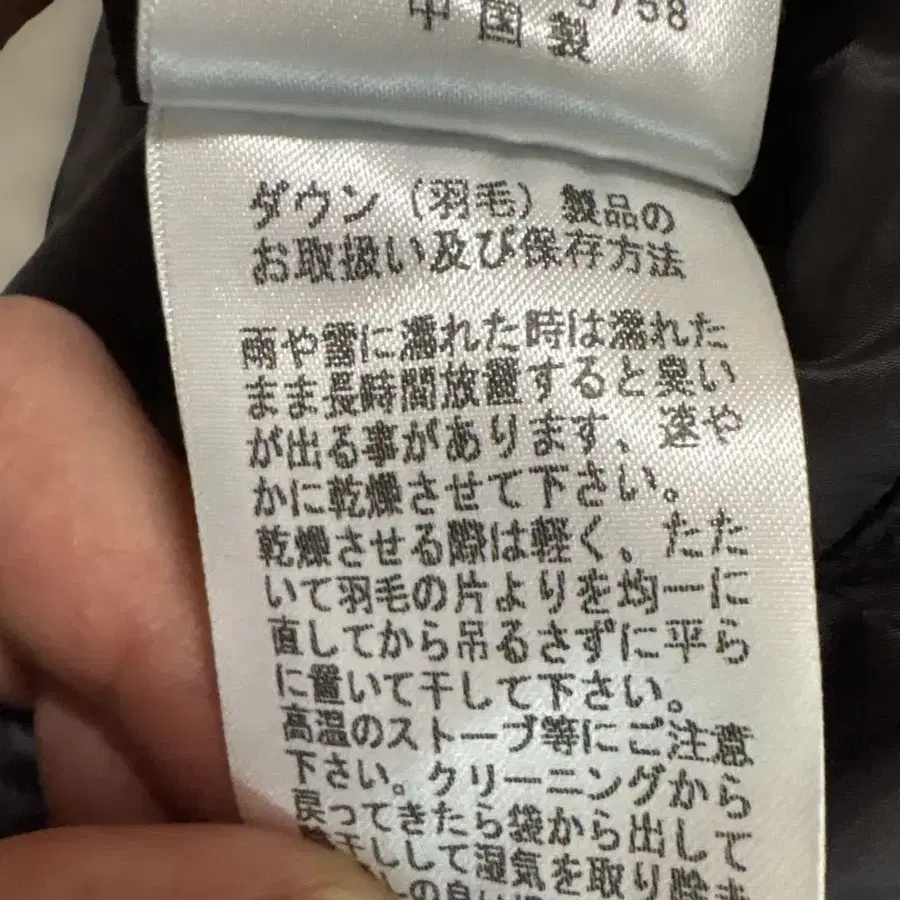 5758
中国製
ダウン（羽毛）製品の
お取扱い及び保存方法
雨や雪に濡れた時は濡れた
まま長時間放置すると臭い
が出る事があります、速や
かに乾燥させて下さい。
乾燥させる際は軽く、たた
いて羽毛の片よりを均一に
直してから吊るさずに平ら
に置いて干して下さい。
高温のストーブ等にご注意
下さい。クリーニングから
戻ってきたら袋から出して
干しして湿気を取り除
の良い